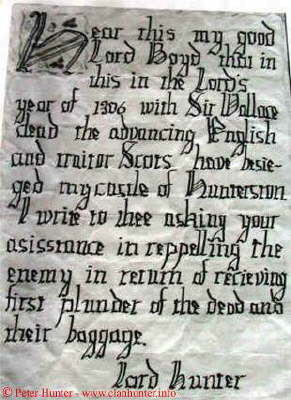 Hear this my good
Lord Boyd that in
this in the Lord's
year of 1306 with Sir Vallace
dead the advancing English
and traitor Scots have besie-
ged my castle of Hunterston
I write to thee asking your
asisstance in reppelling the
enemy in return of recieving
first plunder of the dead and
their baggage.
Lord Hunter
© Peter Hunter - www.clanhunter.info